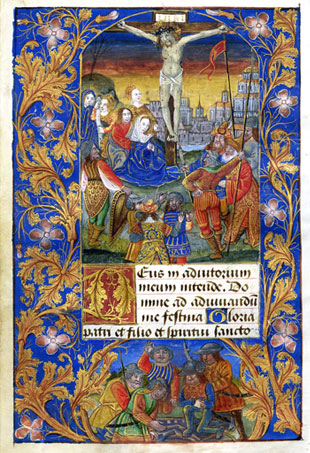 INRI
Deus in adiutorium
meum intende. Do
mine ad adiuuandū
me festina Gloria
patri et filio et spiritui sancto